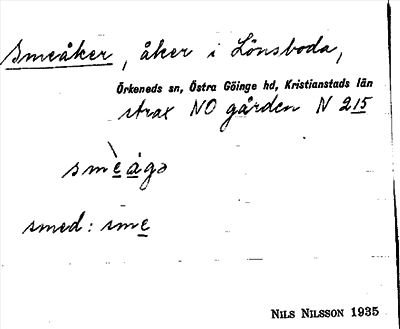 Smeåker, åker i Lönsboda,
Örkeneds sn, Östra Göinge hd, Kristianstads län
strax NO gården N 215
smèågə
smed: sme
NILS NILSSON 1935